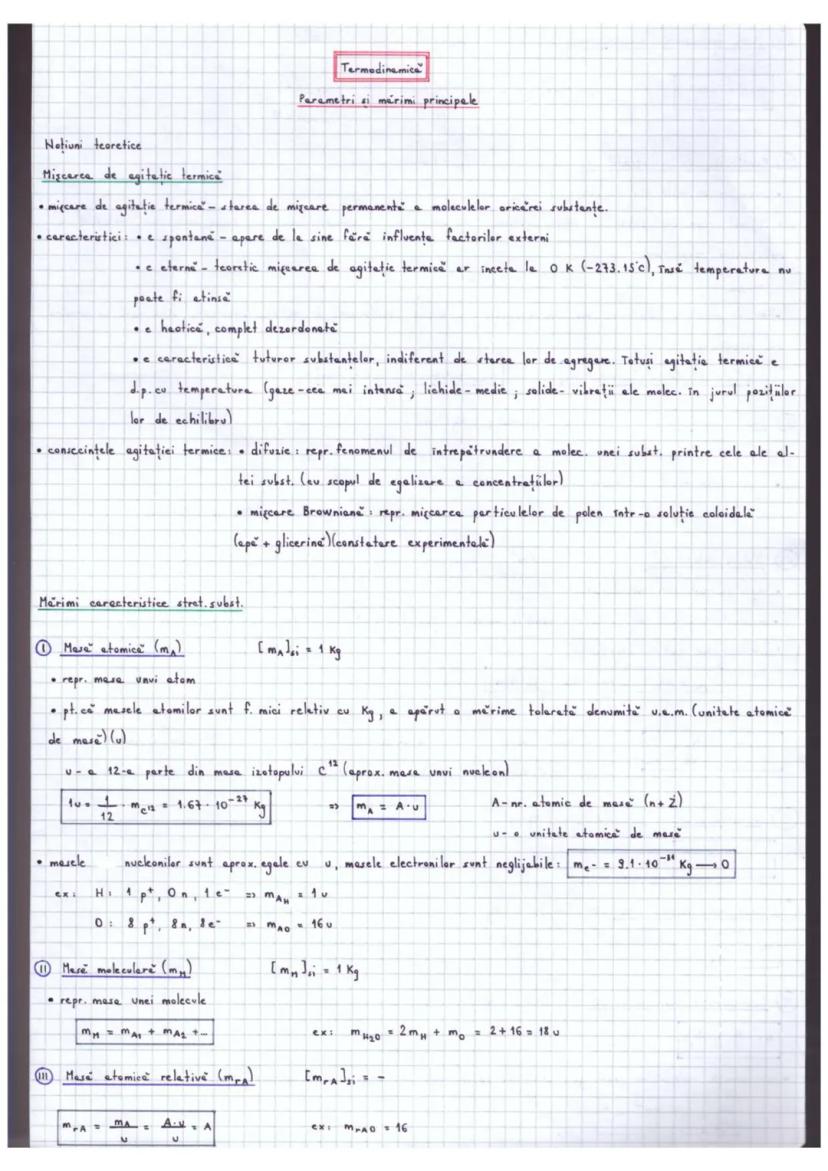 Termodinamică
Parametri si mărimi principale
Noțiuni teoretice
Mișcarea de agitație termică
• mișcare de agitație termică - starea de mișcare permanentă a moleculelor oricărei substanțe.
• caracteristici: • e spontană - apare de la sine fără influența factorilor externi
• e eternă - teoretic mișcarea de agitație termică ar înceta la 0 K (-273.15°C), însă temperatura nu
poate fi atinsă
• e haotică, complet dezordonată
• e caracteristică tuturor substanțelor, indiferent de starea lor de agregare. Totuși agitația termică e
d.p. cu temperatura (gaze - cea mai intensă ; lichide - medie ; solide - vibrații ale molec. în jurul pozițiilor
lor de echilibru)
• consecințele agitației termice: • difuzie : repr. fenomenul de întrepătrundere a molec. unei subst. printre cele ale al-
tei subst. (cu scopul de egalizare a concentrațiilor)
• mișcare Browniană : repr. mișcarea particulelor de polen într-o soluție coloidală
(apă + glicerină)(constatare experimentală)
Mărimi caracteristice strat. subst.
I Masă atomică (mA) [mA]si = 1 Kg
• repr. masa unui atom
• pt. că masele atomilor sunt f. mici relativ cu Kg, a apărut o mărime tolerată denumită u.a.m. (unitate atomică
de masă) (u)
u - a 12-a parte din masa izotopului C¹² (aprox. masa unui nucleon)
1u = 1/12 · mC12 = 1.67 · 10⁻²⁷ Kg => mA = A·u A - nr. atomic de masă (n + Z)
u - o unitate atomică de masă
• masele nucleonilor sunt aprox. egale cu u, masele electronilor sunt neglijabile: me⁻ = 9.1 · 10⁻³¹ Kg → 0
ex: H: 1 p⁺, 0 n, 1 e⁻ => mAH = 1 u
O: 8 p⁺, 8n, 8e⁻ => mAO = 16 u
II Masă moleculară (mM) [mM]si = 1 Kg
• repr. masa unei molecule
mM = mA1 + mA2 + ... ex: mH2O = 2mH + mO = 2 + 16 = 18 u
III Masă atomică relativă (mrA) [mrA]si = -
mrA = mA/u = A·u/u = A ex: mrAO = 16